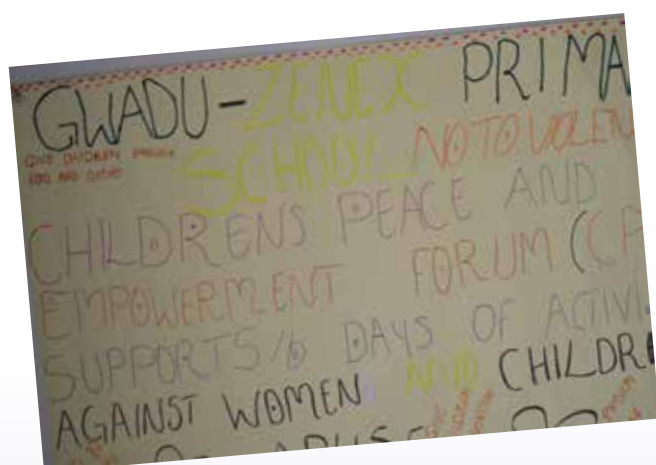 GWADU-ZENEX PRIMA
SCHOOL NO TO VIOLEN
CHILDRENS PEACE AND
EMPOWERMENT FORUM (CP
SUPPORTS 16 DAYS OF ACTIVI
AGAINST WOMEN AND CHILDRE
ABUSE